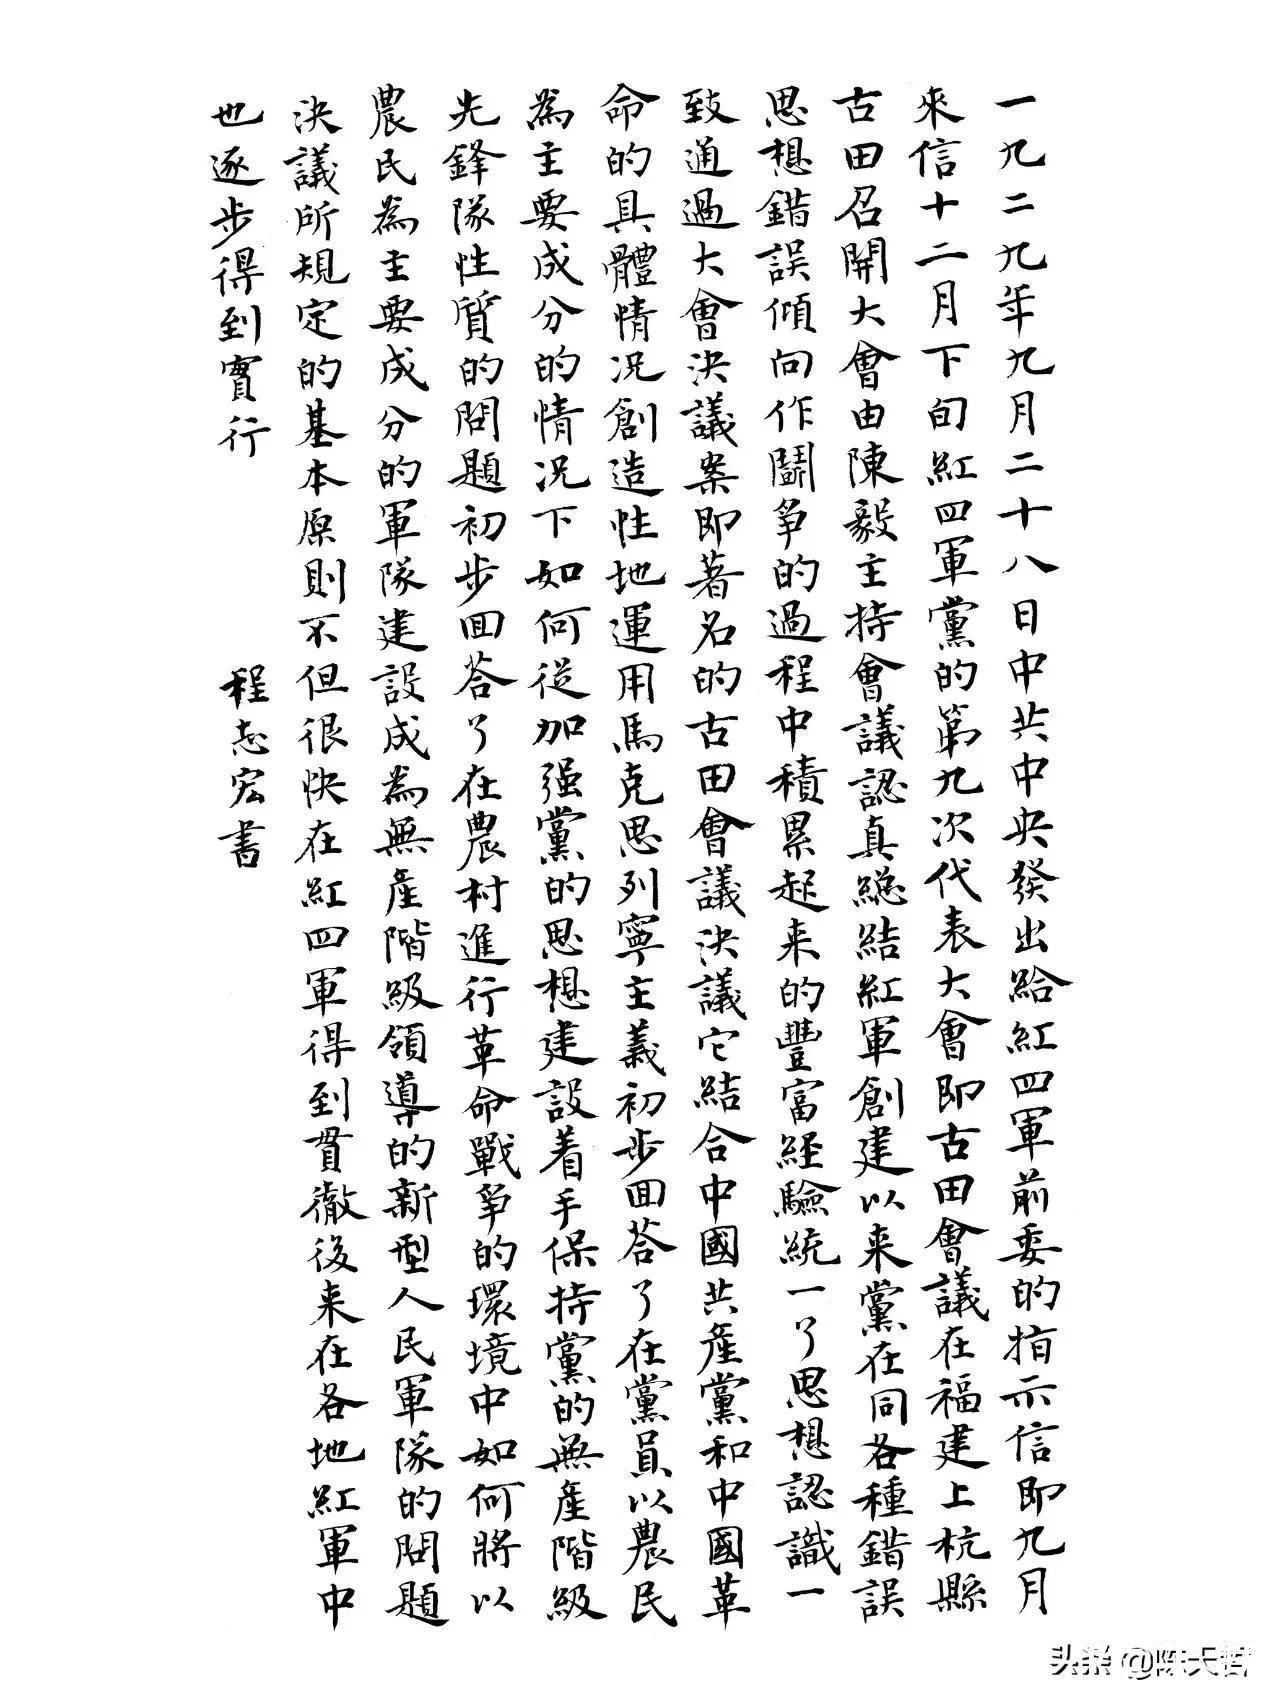 一九二九年九月二十八日中共中央發出給紅四軍前委的指示信即九月
來信十二月下旬紅四軍黨的第九次代表大會即古田會議在福建上杭縣
古田召開大會由陳毅主持會議認真總結紅軍創建以来黨在同各種錯誤
思想錯誤傾向作鬭爭的過程中積累起来的豐富経驗統一了思想認識一
致通過大會決議案即著名的古田會議決議它結合中國共產黨和中國革
命的具體情况創造性地運用馬克思列寧主義初步回答了在黨員以農民
為主要成分的情况下如何從加强黨的思想建設着手保持黨的無產階級
先鋒隊性質的問題初步回答了在農村進行革命戰爭的環境中如何將以
農民為主要成分的軍隊建設成為無產階級領導的新型人民軍隊的問題
決議所規定的基本原則不但很快在紅四軍得到貫徹後来在各地紅軍中
也逐步得到實行
程志宏書
头条@陈天哲